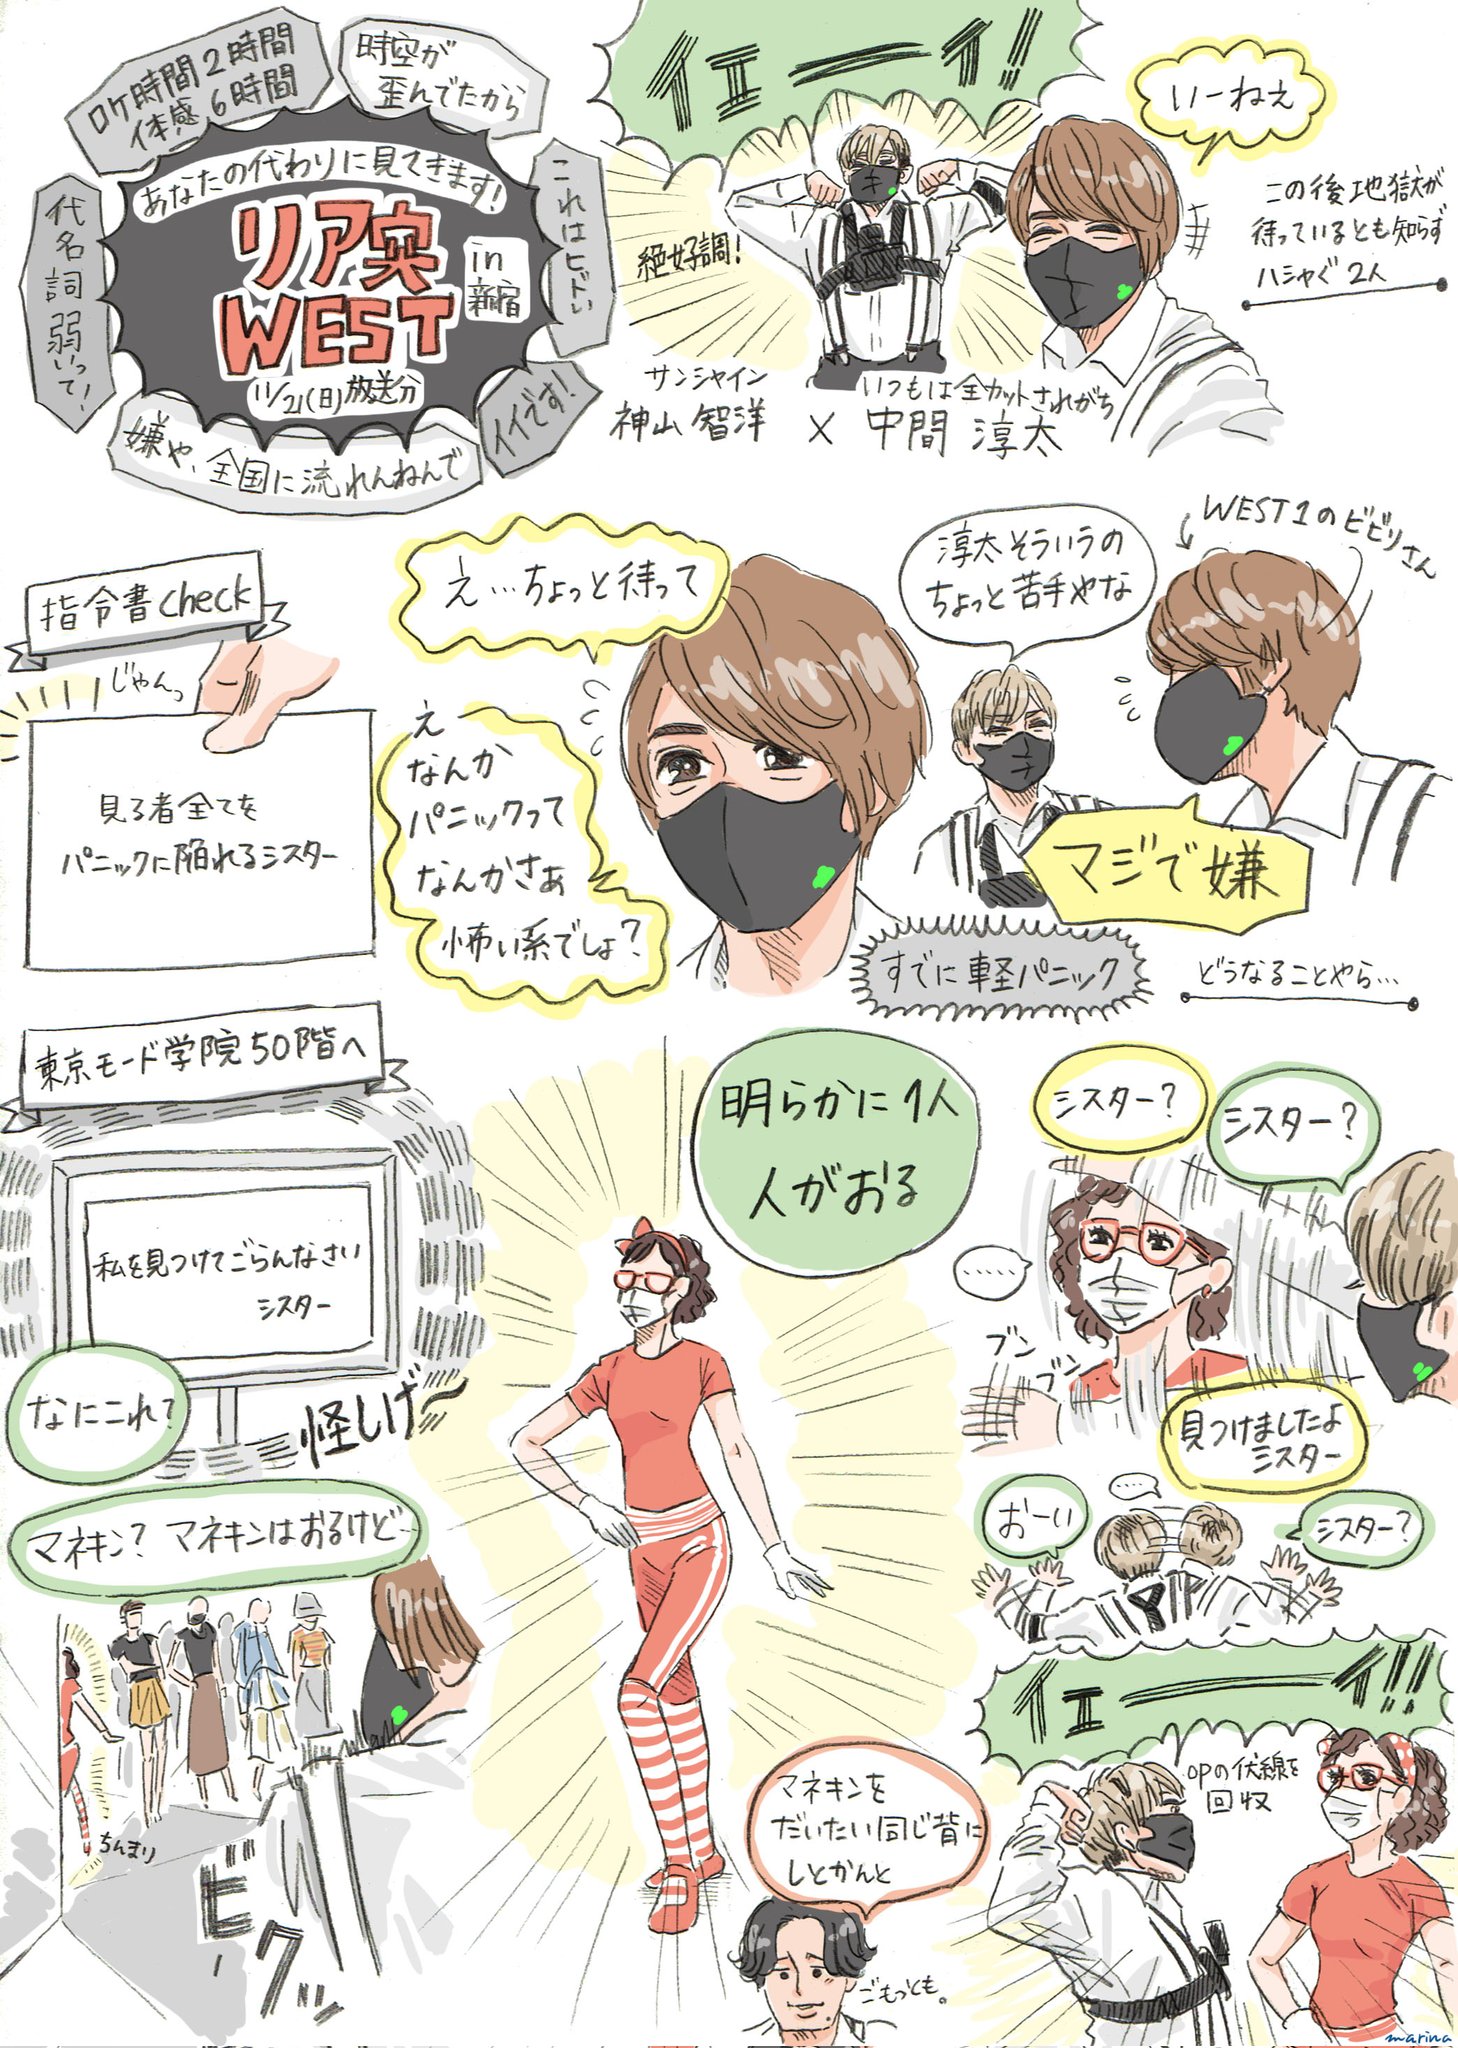 ロケ時間2時間
体感6時間
時空が
歪んでたから
これはヒドい
代名詞弱いって!
イイです!
嫌や、全国に流れんねんで
あなたの代わりに見てきます!
リア突
WEST
in
新宿
11/21(日)放送分
イエーイ!
いーねえ
絶好調!
この後地獄が
待っているとも知らず
ハシャぐ2人
サンシャイン
神山智洋
×
いつもは全カットされがち
中間淳太
指令書check
じゃんっ
見る者全てを
パニックに陥れるシスター
え…ちょっと待って
え
なんか
パニックって
なんかさぁ
怖い系でしょ?
淳太そういうの
ちょっと苦手やな
WEST1のビビリさん
マジで嫌
すでに軽パニック
どうなることやら…
東京モード学院50階へ
私を見つけてごらんなさい
シスター
なにこれ?
怪しげ〜
マネキン?マネキンはおるけど…
ちんまり
ビクッ
明らかに1人
人がおる
シスター?
シスター?
……
ブン
ブン
見つけましたよ
シスター
おーい
……
シスター?
イエーイ!!
OPの伏線を
回収
マネキンを
だいたい同じ背に
しとかんと
ごもっとも。
marina